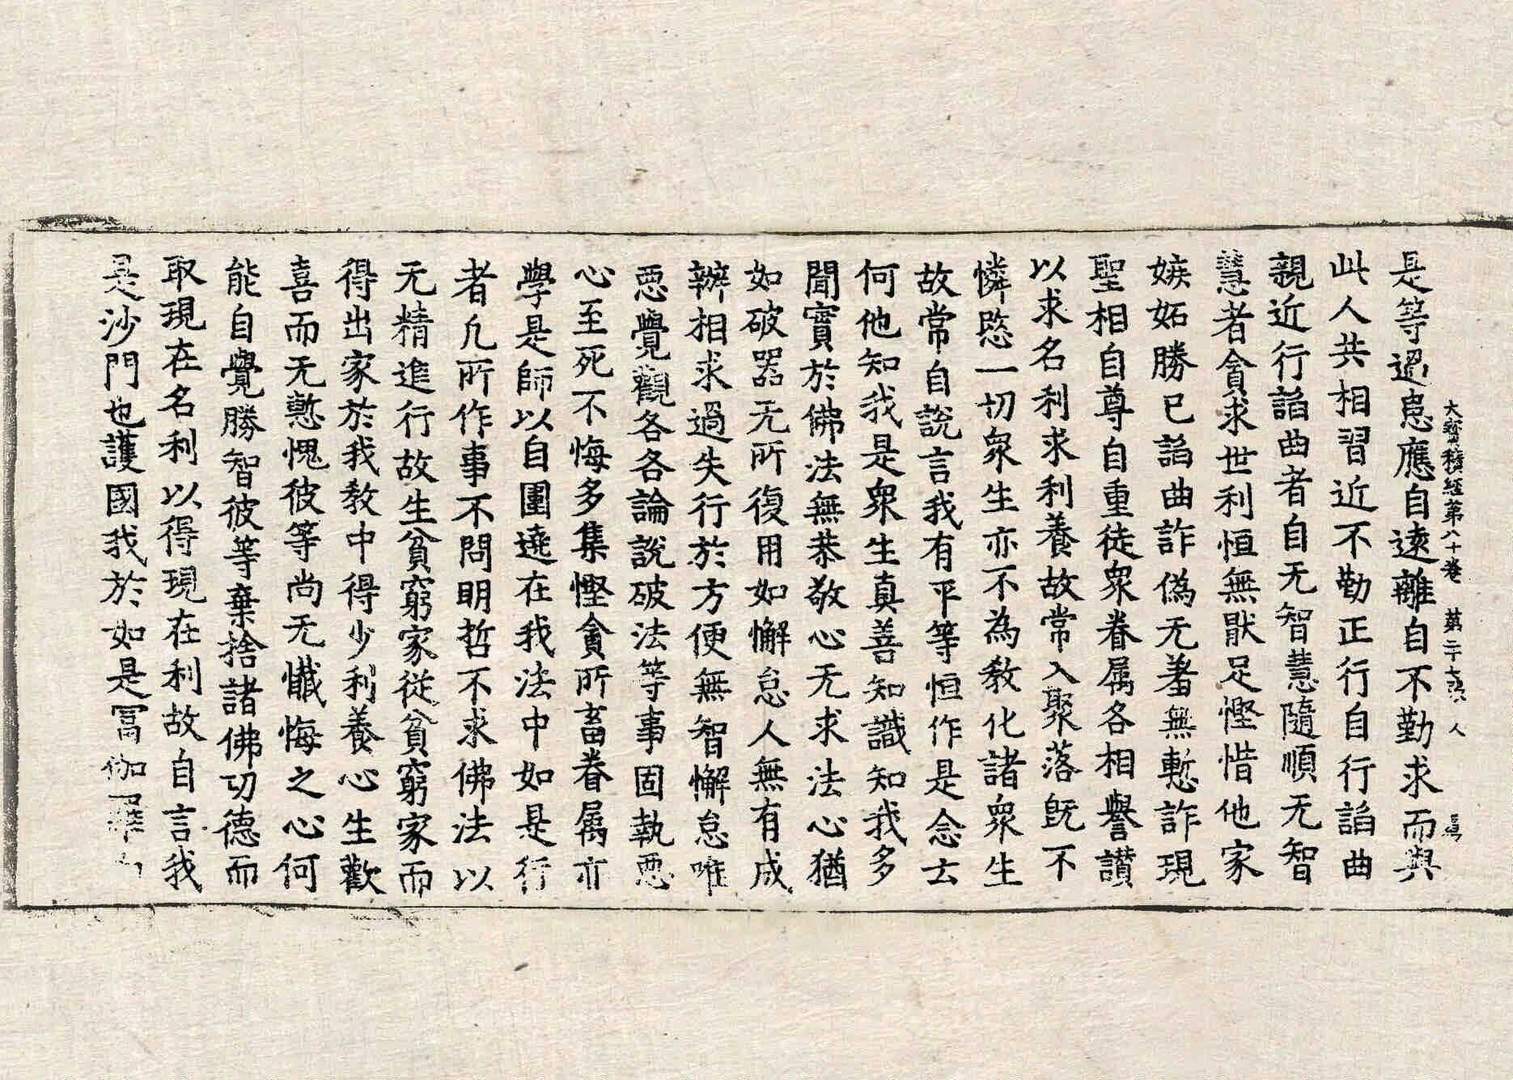 大寶積經第八十卷 第二十 人
是等過患應自遠離自不勤求而與
此人共相習近不勤正行自行諂曲
親近行諂曲者自无智慧隨順无智
慧者貪求世利恒無猒足慳惜他家
嫉妬勝已諂曲詐偽无羞無慙詐現
聖相自尊自重徒衆眷属各相譽讃
以求名利求利養故常入聚落既不
憐愍一切衆生亦不為教化諸衆生
故常自說言我有平等恒作是念云
何他知我是衆生真善知識知我多
聞實於佛法無恭敬心无求法心猶
如破器无所復用如懈怠人無有成
辦相求過失行於方便無智懈怠唯
惡覺觀各各論說破法等事固執惡
心至死不悔多集慳貪所畜眷属亦
學是師以自圍遶在我法中如是行
者凢所作事不問明哲不求佛法以
无精進行故生貧窮家從貧窮家而
得出家於我教中得少利養心生歡
喜而无慙愧彼等尚无懺悔之心何
能自覺勝智彼等棄捨諸佛功德而
取現在名利以得現在利故自言我
是沙門也護國我於如是冨伽羅